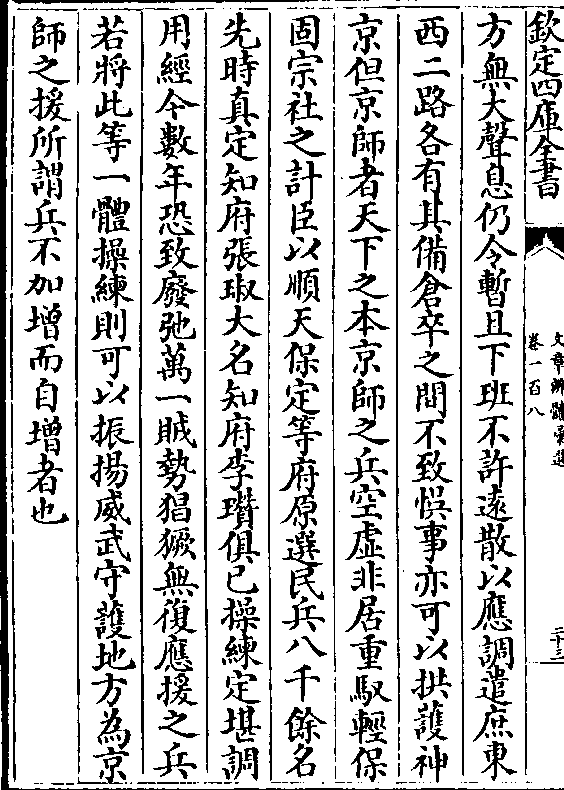 欽定四庫全書
文章辨體彙選
卷一百八
二十三
方無大聲息仍令暫且下班不許遠散以應調遣庶東
西二路各有其備倉卒之間不致悞事亦可以拱護神
京但京師者天下之本京師之兵空虛非居重馭輕保
固宗社之計臣以順天保定等府原選民兵八千餘名
先時真定知府張琡大名知府李瓚俱已操練定堪調
用經今數年恐致廢弛萬一賊勢猖獗無復應援之兵
若將此等一體操練則可以振揚威武守護地方為京
師之援所謂兵不加增而自增者也